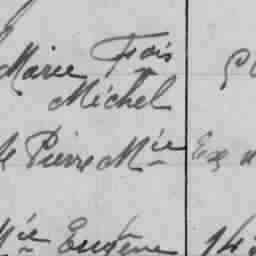 Marie Fçois
Michel
Pierre Mie
Mie Eugène 14